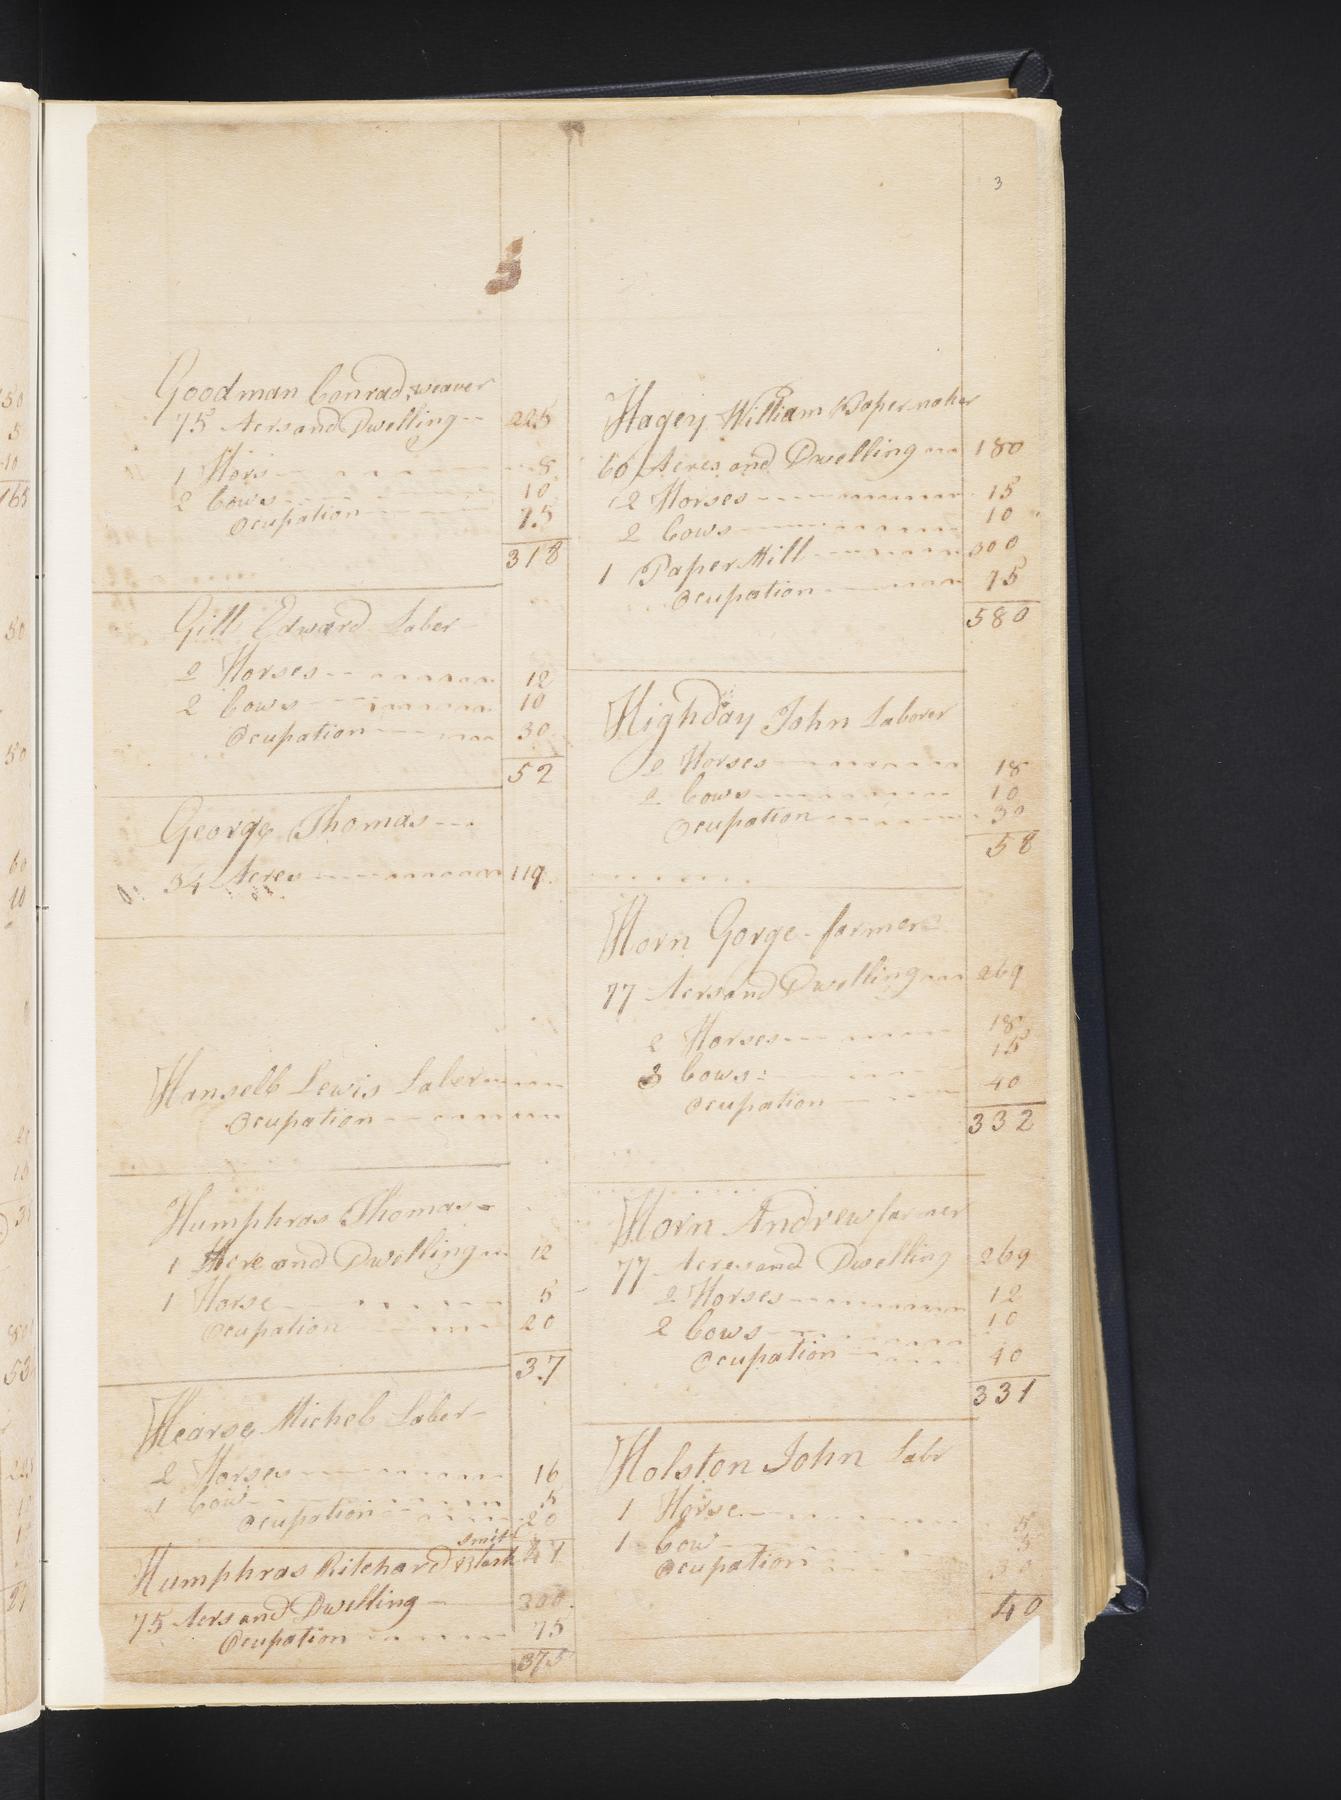 3
Goodman Conrad, weaver
75 Acrs and Dwelling 225
1 Hors 8
2 Cows 10
Ocupation 75
318
Gill Edward Laber
2 Horses 12
2 Cows 10
Ocupation 30
52
George Thomas
34 Acres 119
Hansell Lewis Laber
Ocupation
Humphras Thomas
1 Acre and Dwelling 12
1 Horse 5
Ocupation 20
37
Hearse Michel Laber
2 Horses 16
1 Cow 5
Ocupation 20
41
Humphras Ritchard Black smith
75 Acrs and Dwelling 300
Ocupation 75
375
Hagey William Papermaker
60 Acres and Dwelling 180
2 Horses 15
2 Cows 10
1 Paper Mill 300
Ocupation 75
580
Highday John Laborer
2 Horses 18
2 Cows 10
Ocupation 30
58
Horn Gorge farmer
77 Acrs and Dwelling 269
2 Horses 18
3 Cows: 15
Ocupation 40
332
Horn Andrew farmer
77 Acres and Dwelling 269
2 Horses 12
2 Cows 10
Ocupation 40
331
Holston John Labr
1 Horse 5
1 Cow 5
Ocupation 30
40